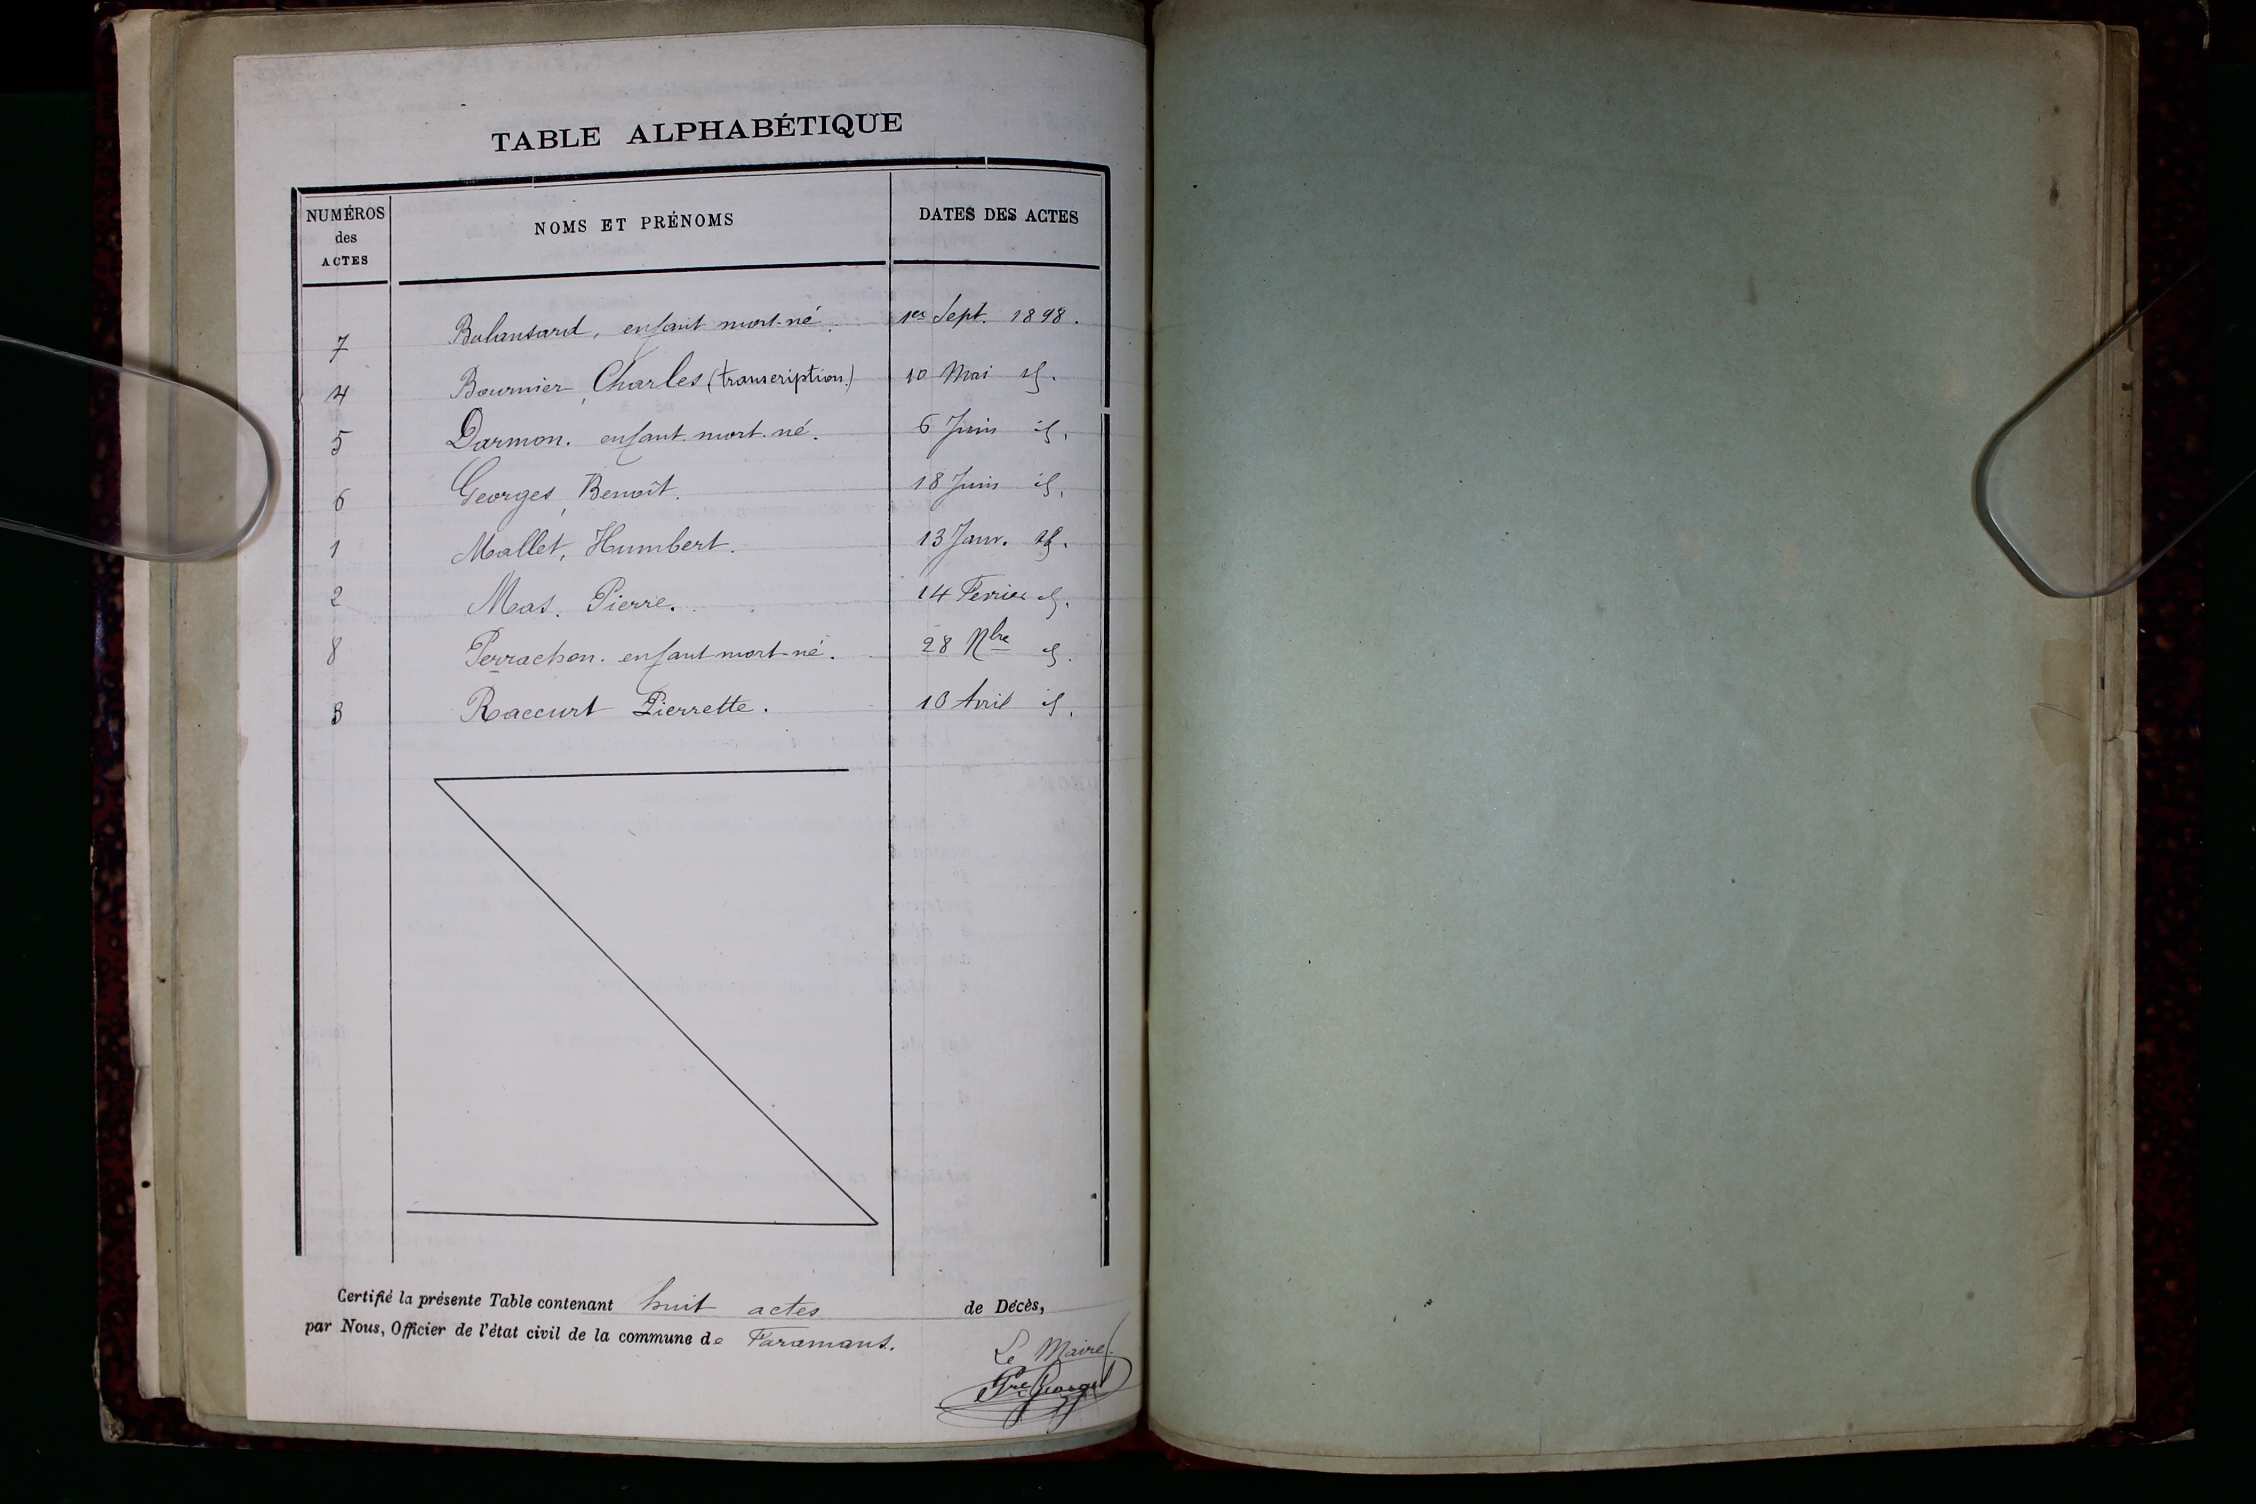 TABLE ALPHABÉTIQUE
NUMÉROS des ACTES NOMS ET PRÉNOMS DATES DES ACTES
7 Balansard, enfant mort-né. 1er Sept. 1898.
4 Bournier, Charles (transcription.) 10 Mai id.
5 Darmon. enfant mort-né. 6 Juin id.
6 Georges, Benoît. 18 Juin id.
1 Mallet, Humbert. 13 Janv. id.
2 Mas. Pierre. 14 Fevrier id.
8 Perrachon. enfant mort-né. 28 Nbre id.
3 Raccurt Pierrette. Avril id.
Certifié la présente Table contenant huit actes de Décès,
par Nous, Officier de l'état civil de la commune de Faramans.
Le Maire
Pre Georges